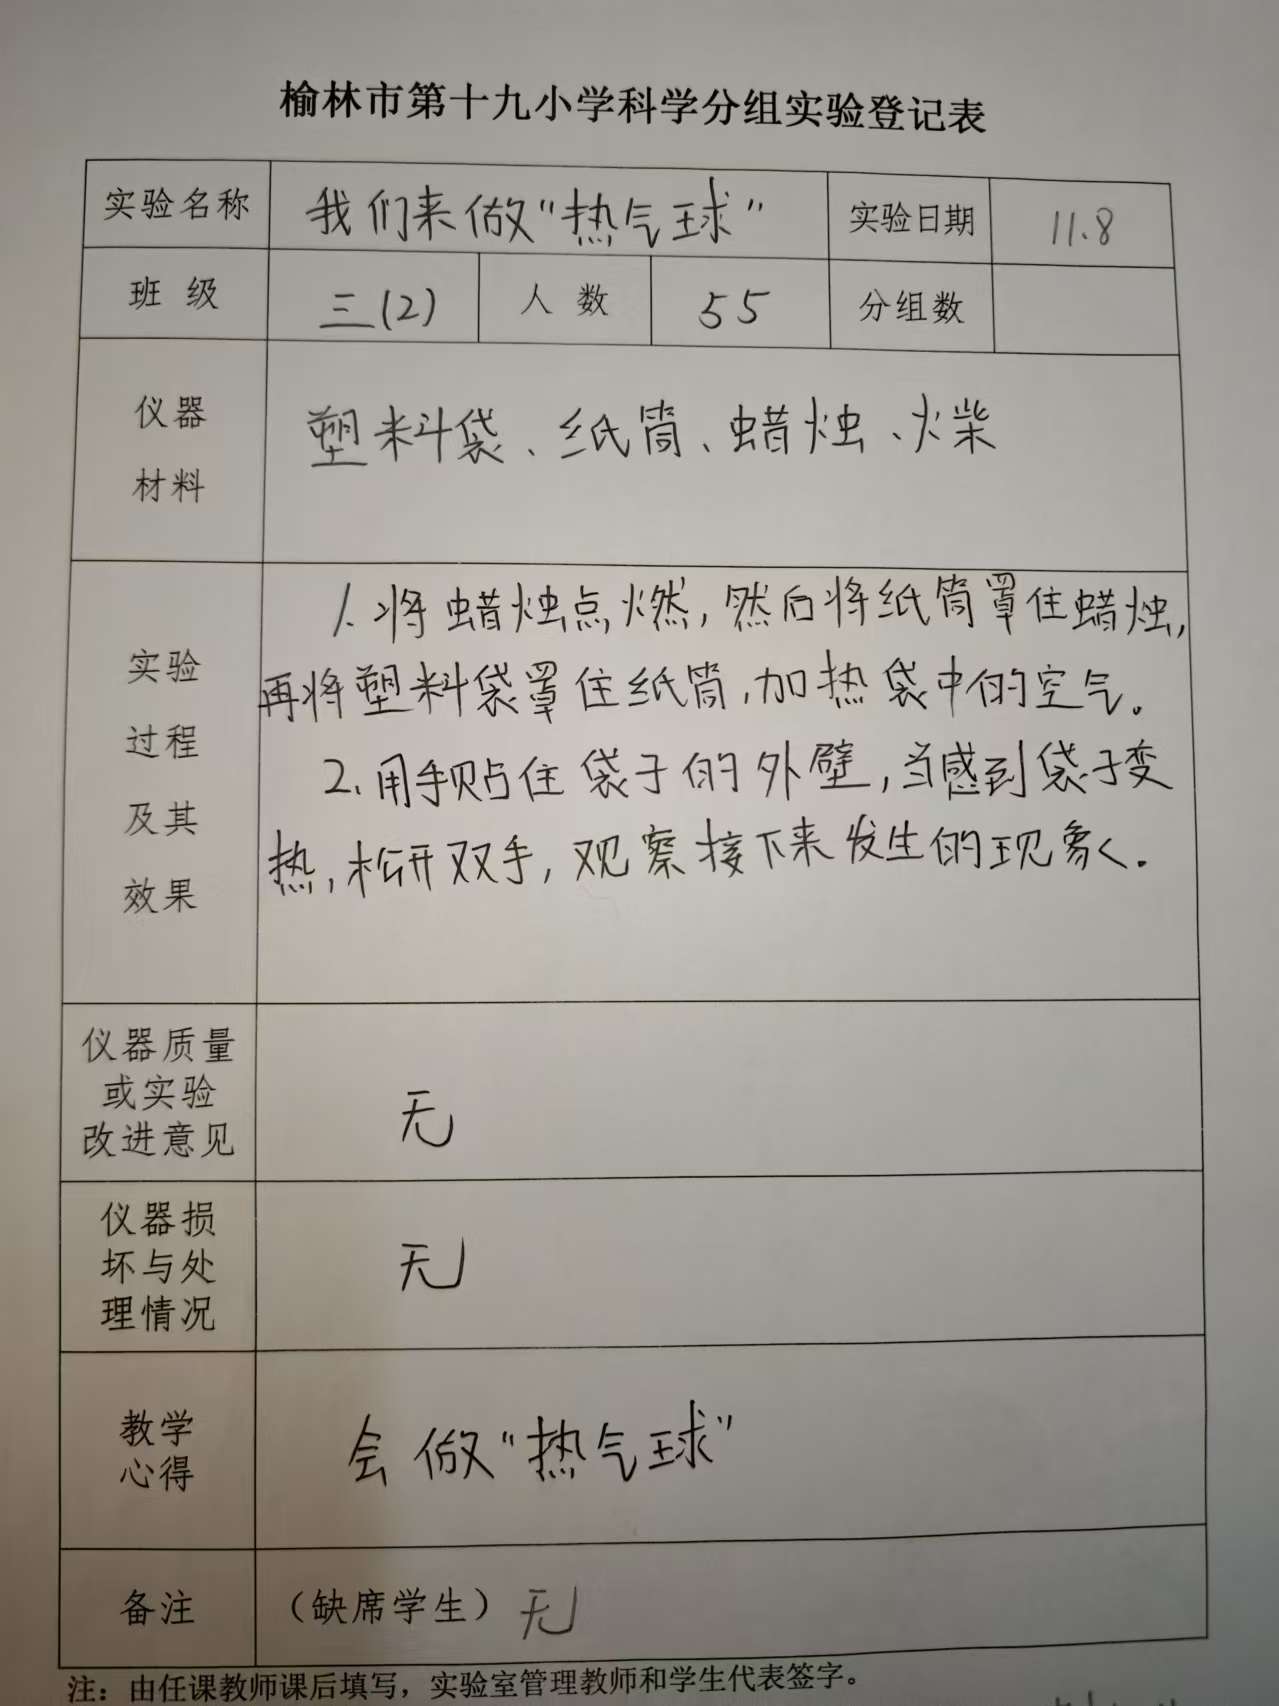 榆林市第十九小学科学分组实验登记表
实验名称 我们来做“热气球” 实验日期 11.8
班 级 三(2) 人 数 55 分组数
仪器
材料
塑料袋、纸筒、蜡烛、火柴
实验
过程
及其
效果
1.将蜡烛点燃,然后将纸筒罩住蜡烛,
再将塑料袋罩住纸筒,加热袋中的空气。
2.用手贴住袋子的外壁,当感到袋子变
热,松开双手,观察接下来发生的现象。
仪器质量
或实验
改进意见
无
仪器损
坏与处
理情况
无
教学
心得
会做“热气球”
备注 (缺席学生) 无
注：由任课教师课后填写，实验室管理教师和学生代表签字。